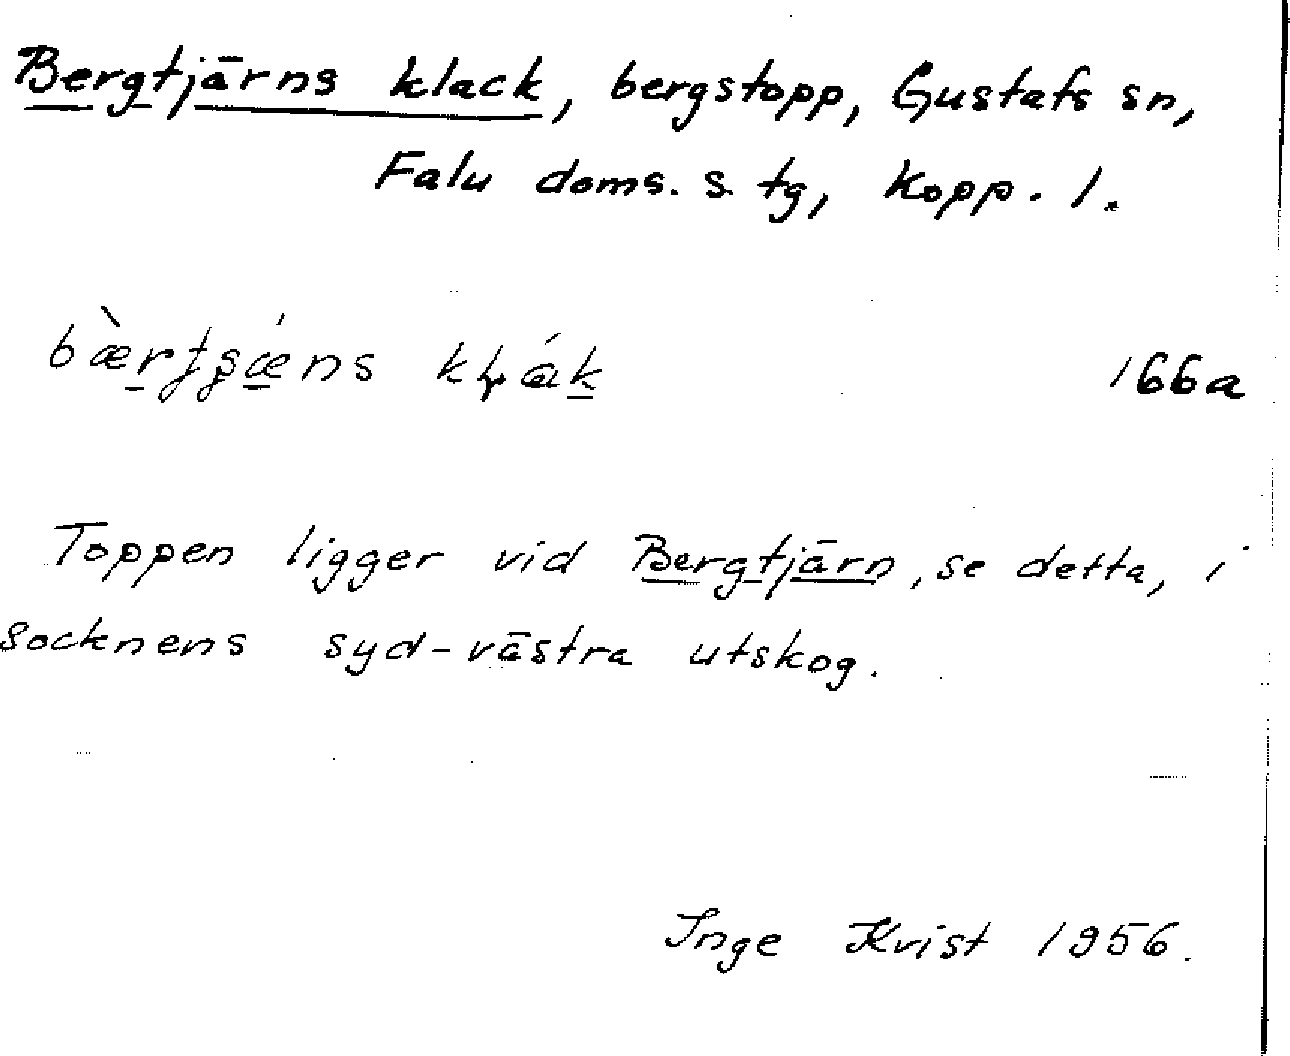 Bergtjärns klack, bergstopp, Gustafs sn,
Falu doms. s. tg, Kopp. l.
166a
Toppen ligger vid Bergtjärn, se detta, i
socknens syd-västra utskog.
Inge Kvist 1956.